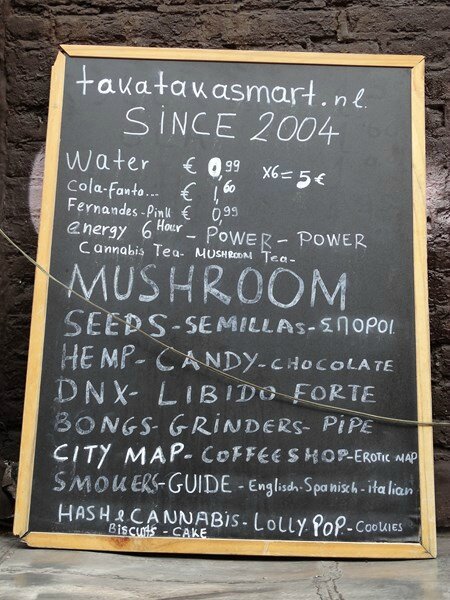 takatakasmart.nl.
SINCE 2004
Water € 0,99 x6= 5€
Cola-Fanta... € 1,60
Fernandes-Pink € 0,99
energy 6 Hour - POWER - POWER
Cannabis Tea- MUSHROOM Tea-
MUSHROOM
SEEDS-SEMILLAS-ΣΠΟΡΟΙ
HEMP- CANDY-CHOCOLATE
DNX- LIBIDO FORTE
BONGS- GRINDERS- PIPE
CITY MAP- COFFEESHOP-EROTIC MAP
SMOKERS-GUIDE - Englisch-Spanisch-italian
HASH & CANNABIS-LOLLY POP-COOKIES
BISCUITS - CAKE